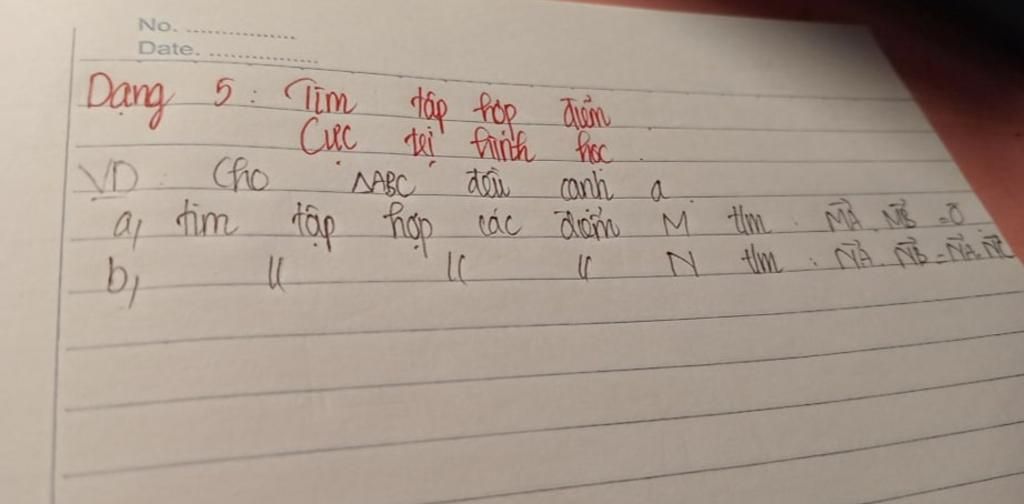 No. ..................
Date. ..................
Dạng 5: Tìm tập hợp điểm.
Cực trị hình học.
VD: Cho ΔABC đều cạnh a.
a, tìm tập hợp các điểm M t/m: \overrightarrow{MA}.\overrightarrow{MB} = 0
b, \\ \\ \\ N t/m: \overrightarrow{NA}.\overrightarrow{NB} = \overrightarrow{NA}.\overrightarrow{NC}